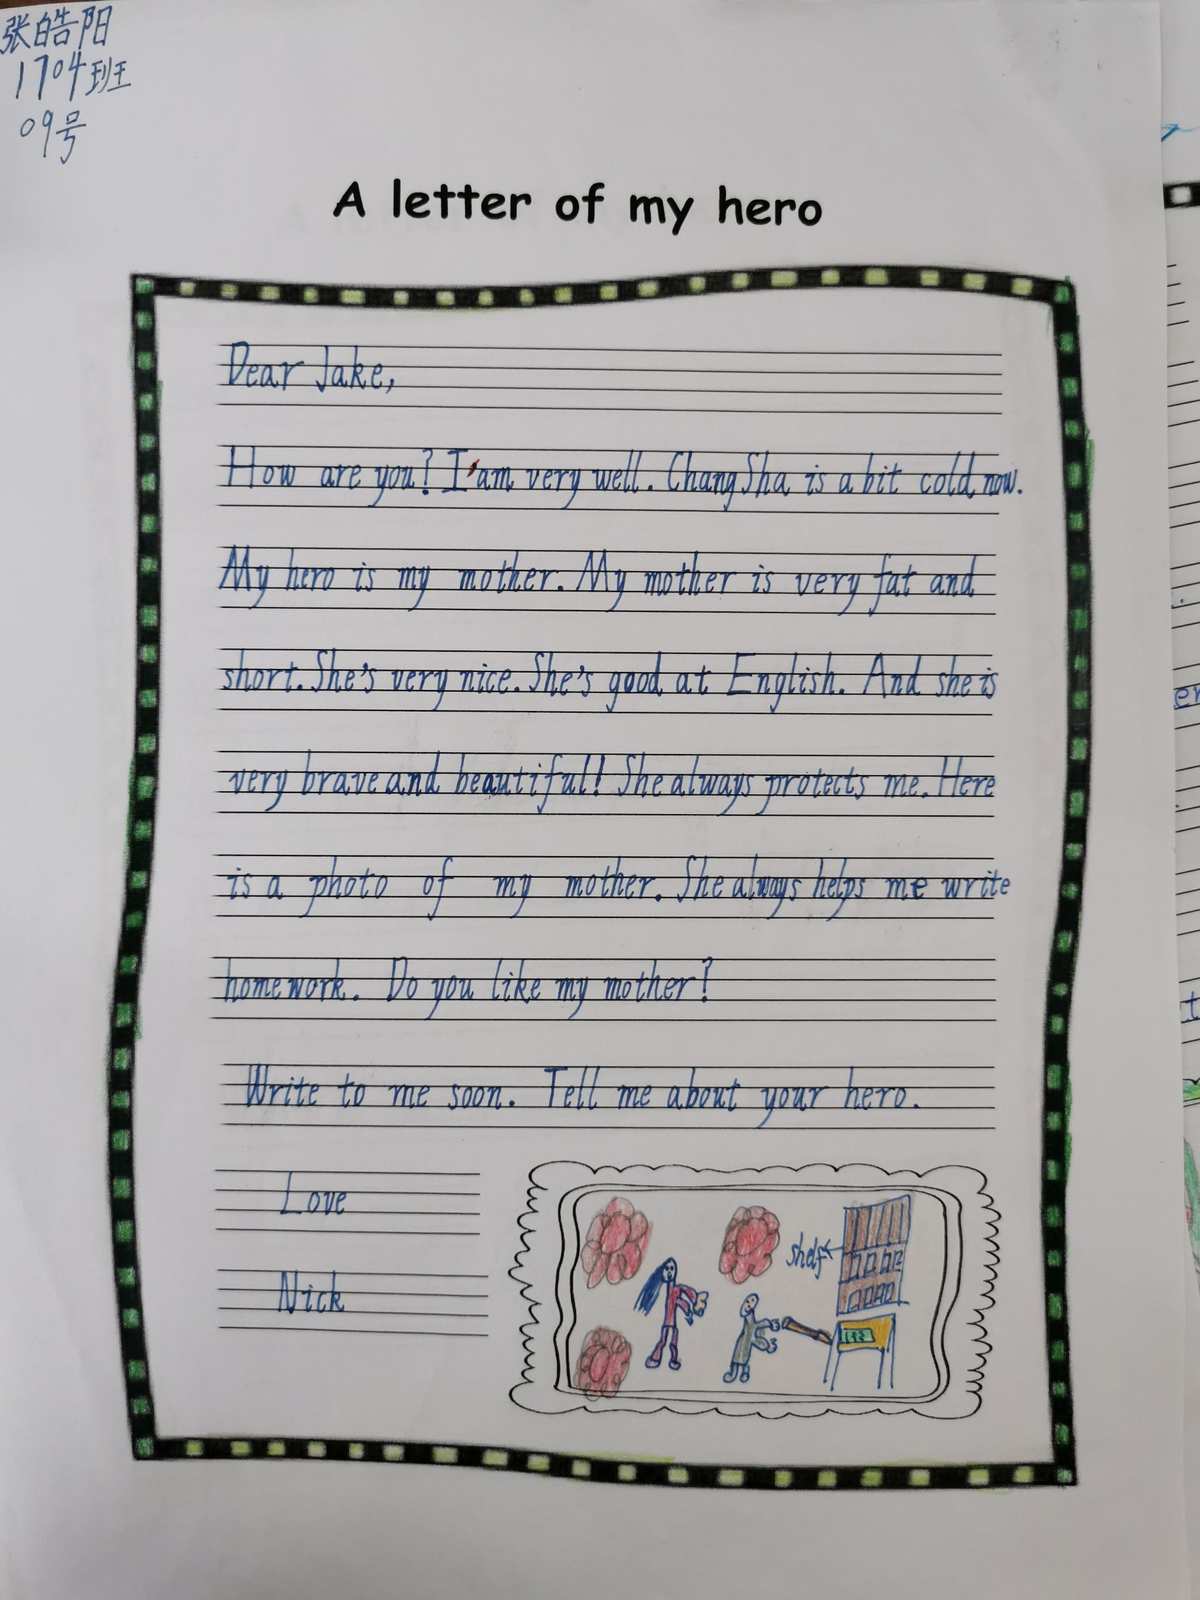 张皓阳
1704班
09号
A letter of my hero
Dear Jake,
How are you? I'am very well. ChangSha is a bit cold now.
My hero is my mother. My mother is very fat and
short. She's very nice. She's good at English. And she is
very brave and beautiful! She always protects me. Here
is a photo of my mother. She always helps me write
homework. Do you like my mother?
Write to me soon. Tell me about your hero.
Love
Nick
shelf